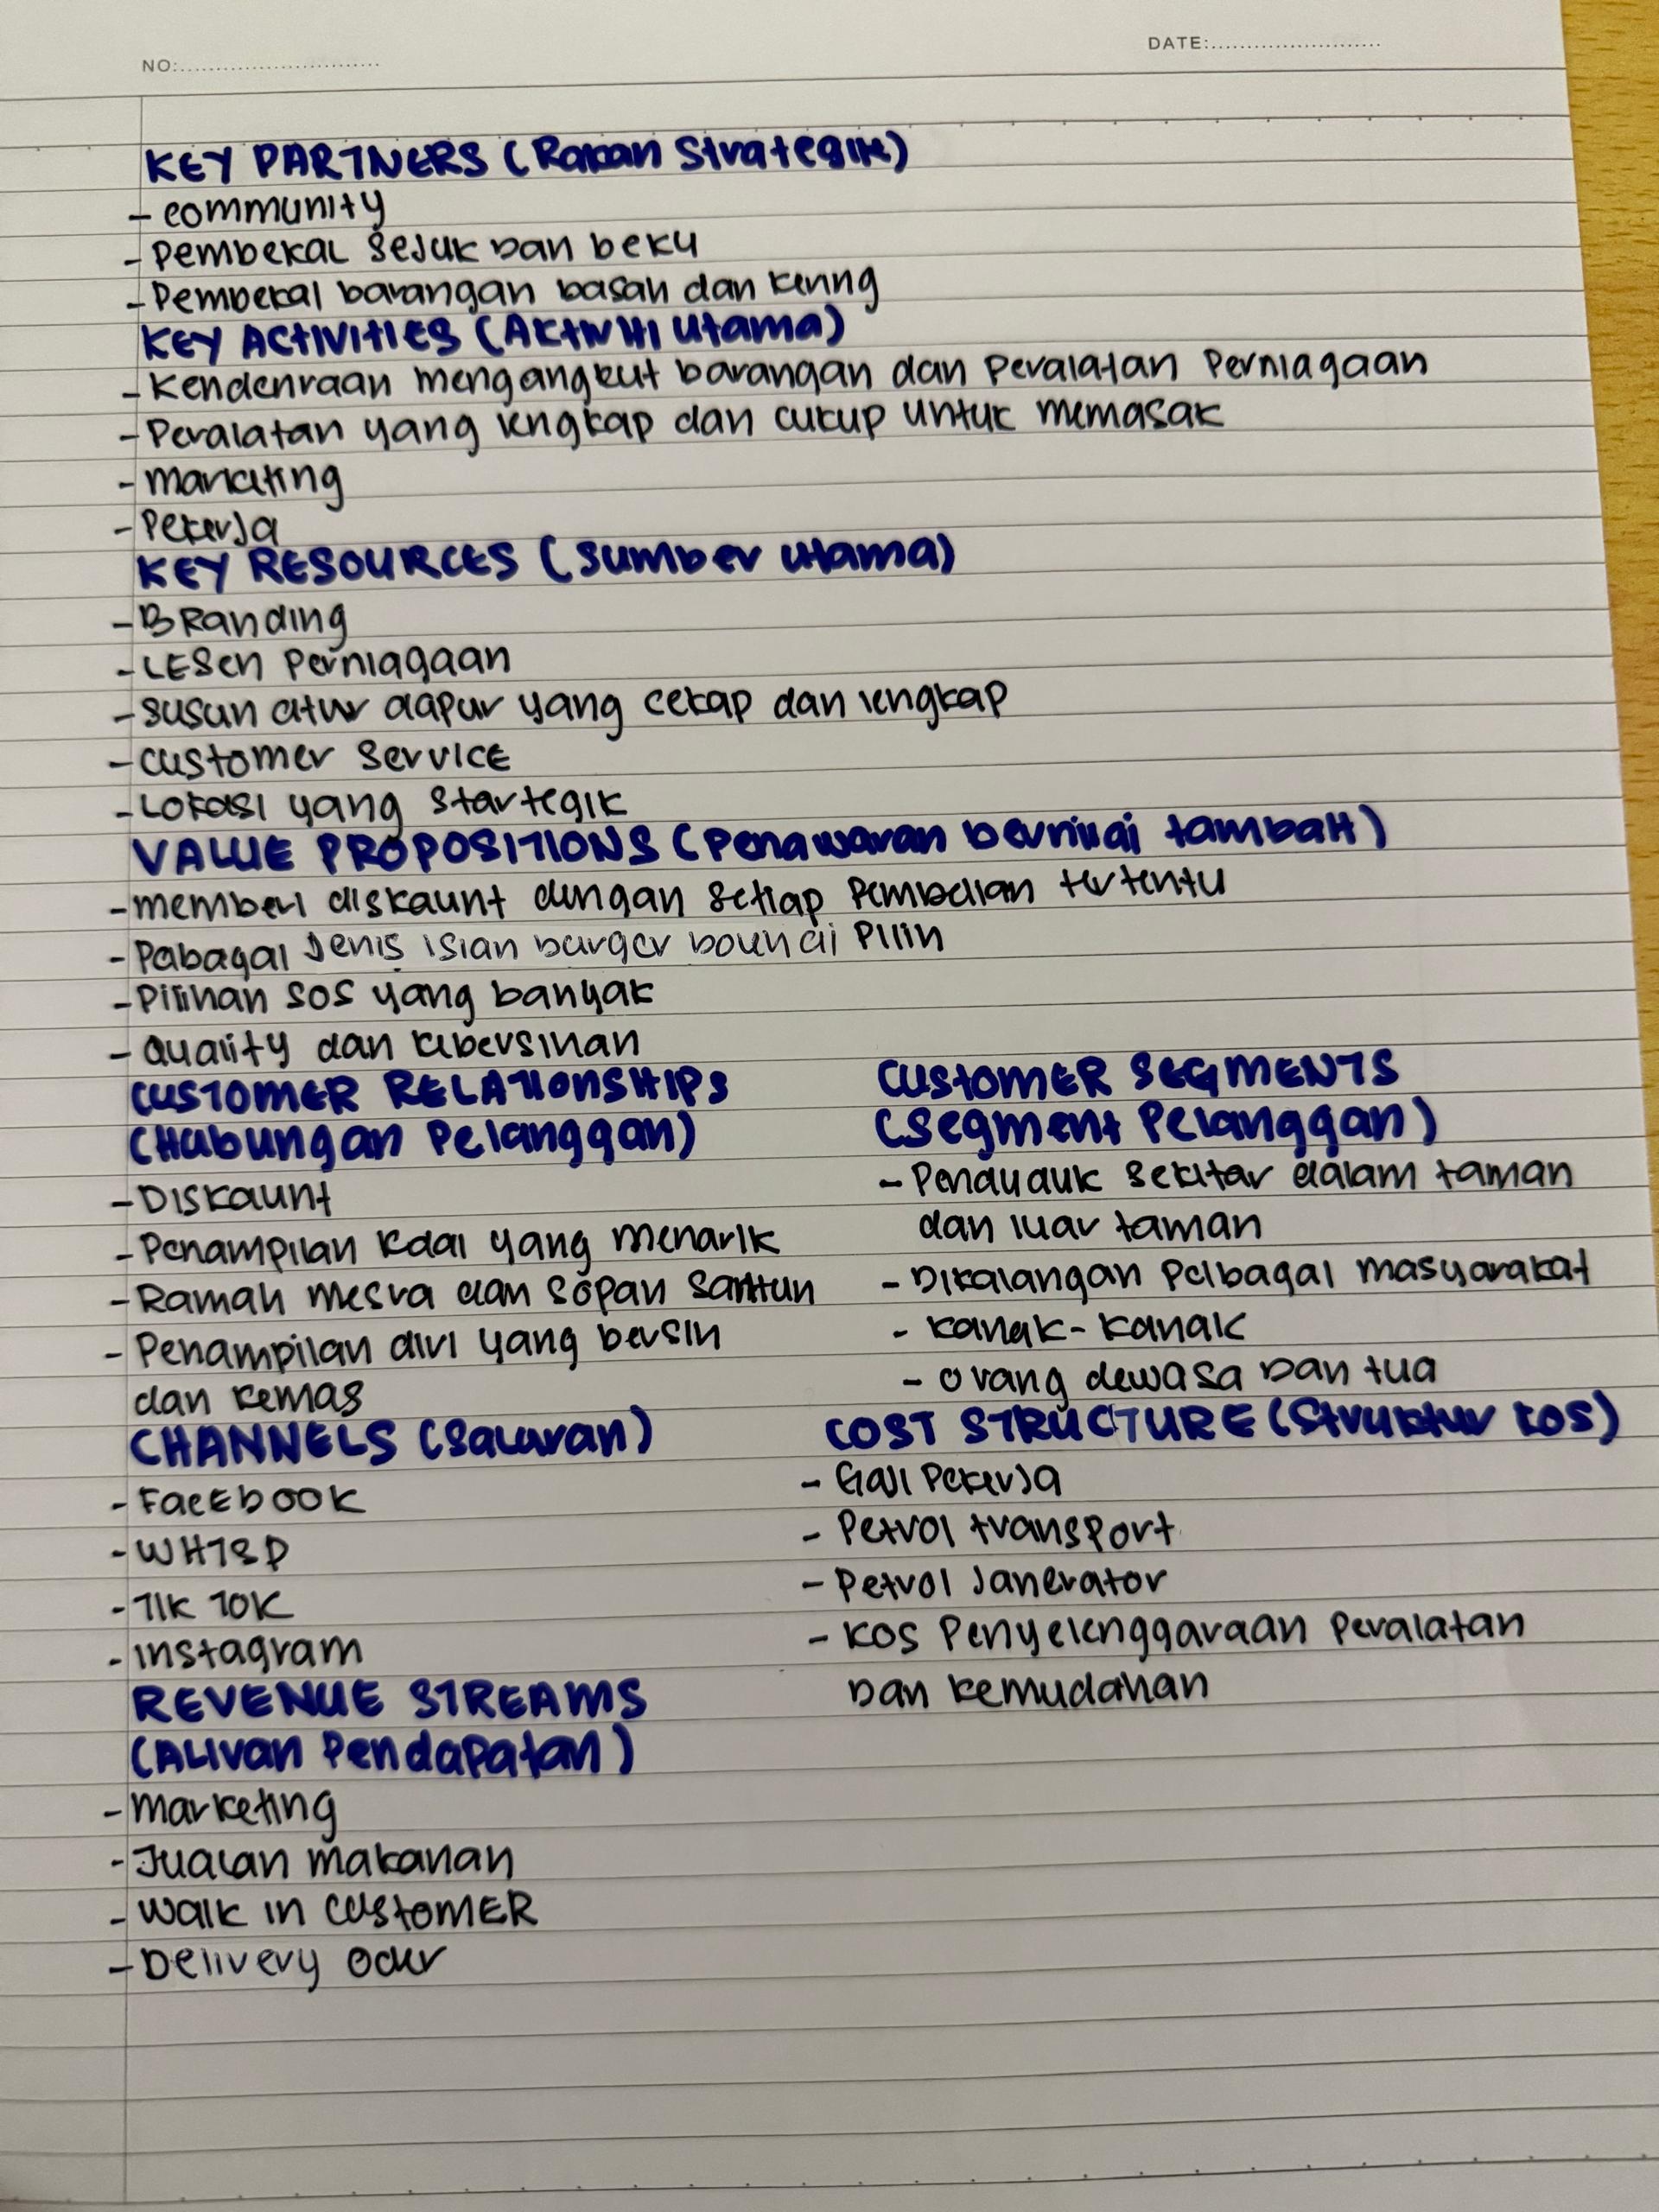 NO:
DATE:
KEY PARTNERS (Rakan Strategik)
- community
- Pembekal Sejuk Dan beku
- Pembekal barangan basah dan kering
KEY ACTIVITIES (Aktiviti Utama)
- Kenderaan mengangkut barangan dan Peralatan Perniagaan
- Peralatan yang lengkap dan cukup untuk memasak
- marketing
- Pekerja
KEY RESOURCES (Sumber Utama)
- Branding
- LESen Perniagaan
- Susun atur dapur yang cekap dan lengkap
- customer Service
- Lokasi yang Startegik
VALUE PROPOSITIONS (Penawaran bernilai tambah)
- memberi diskaunt dengan setiap Pembelian tertentu
- Pabagai Jenis isian burger boleh di Pilih
- Pilihan sos yang banyak
- Quality dan kebersihan
CUSTOMER RELATIONSHIPS
(Hubungan Pelanggan)
- Diskaunt
- Penampilan Kdai yang menarik
- Ramah mesra dan Sopan Santun
- Penampilan diri yang bersih
dan kemas
CUSTOMER SEGMENTS
(Segment Pelanggan)
- Penduduk Sekitar dalam taman
dan luar taman
- Dikalangan Pelbagai masyarakat
- kanak-kanak
- Orang dewasa Dan tua
CHANNELS (Saluran)
- FacEbook
- WHTSP
- TIK TOK
- Instagram
COST STRUCTURE (Struktur kos)
- Gaji Pekerja
- Petrol transport
- Petrol Janerator
- Kos Penyelenggaraan Peralatan
Dan kemudahan
REVENUE STREAMS
(Aliran Pendapatan)
- marketing
- Jualan makanan
- Walk in customER
- Delivery Oder